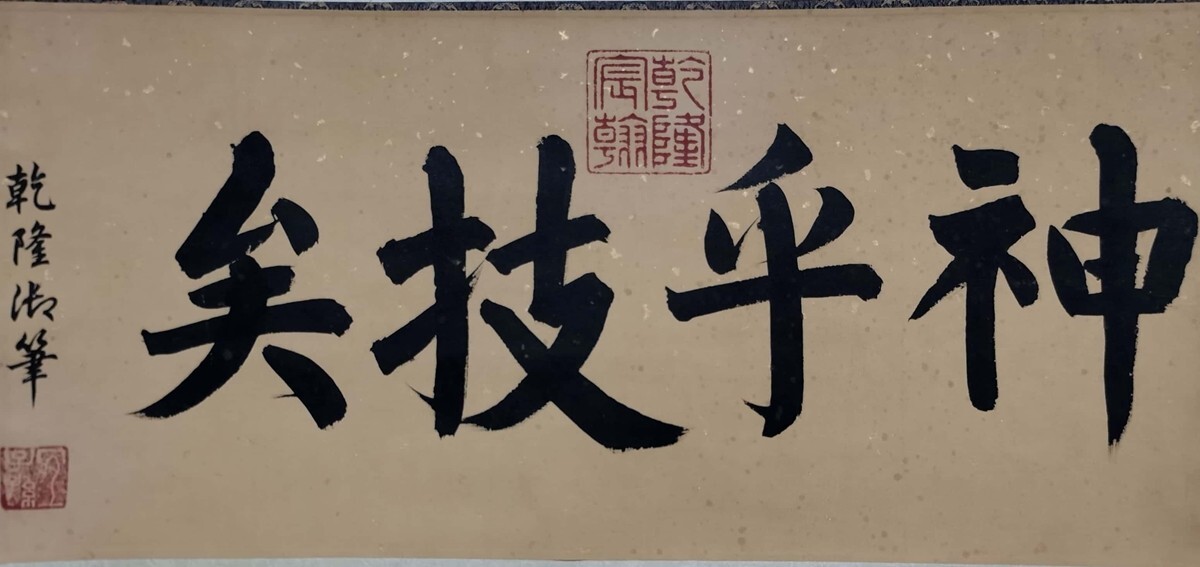 神乎技矣
乾隆宸翰
乾隆御筆